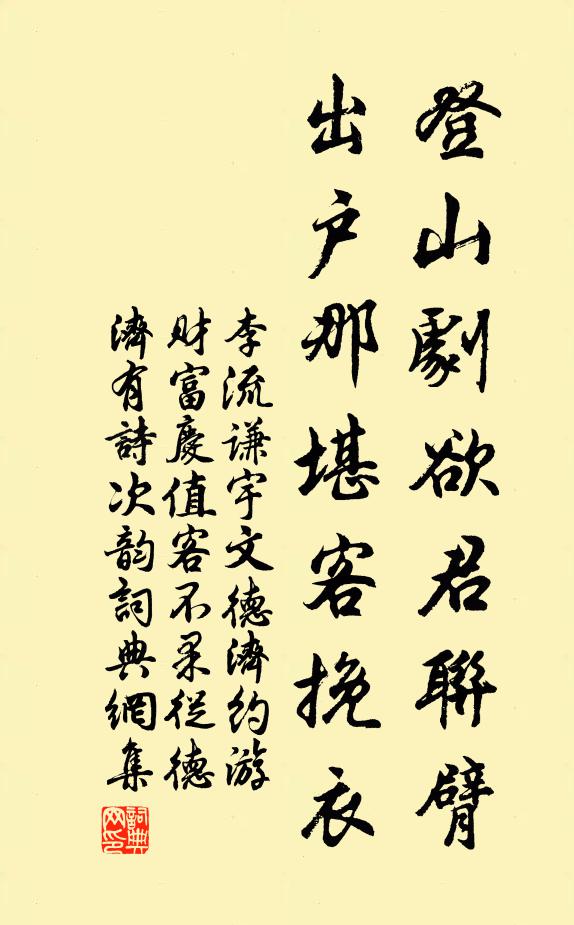 登山劇欲君聯臂
出户那堪客挽衣
李流谦宇文德濟約游
财富慶值客不果從德
濟有詩次韵詞典網集
詞典网印